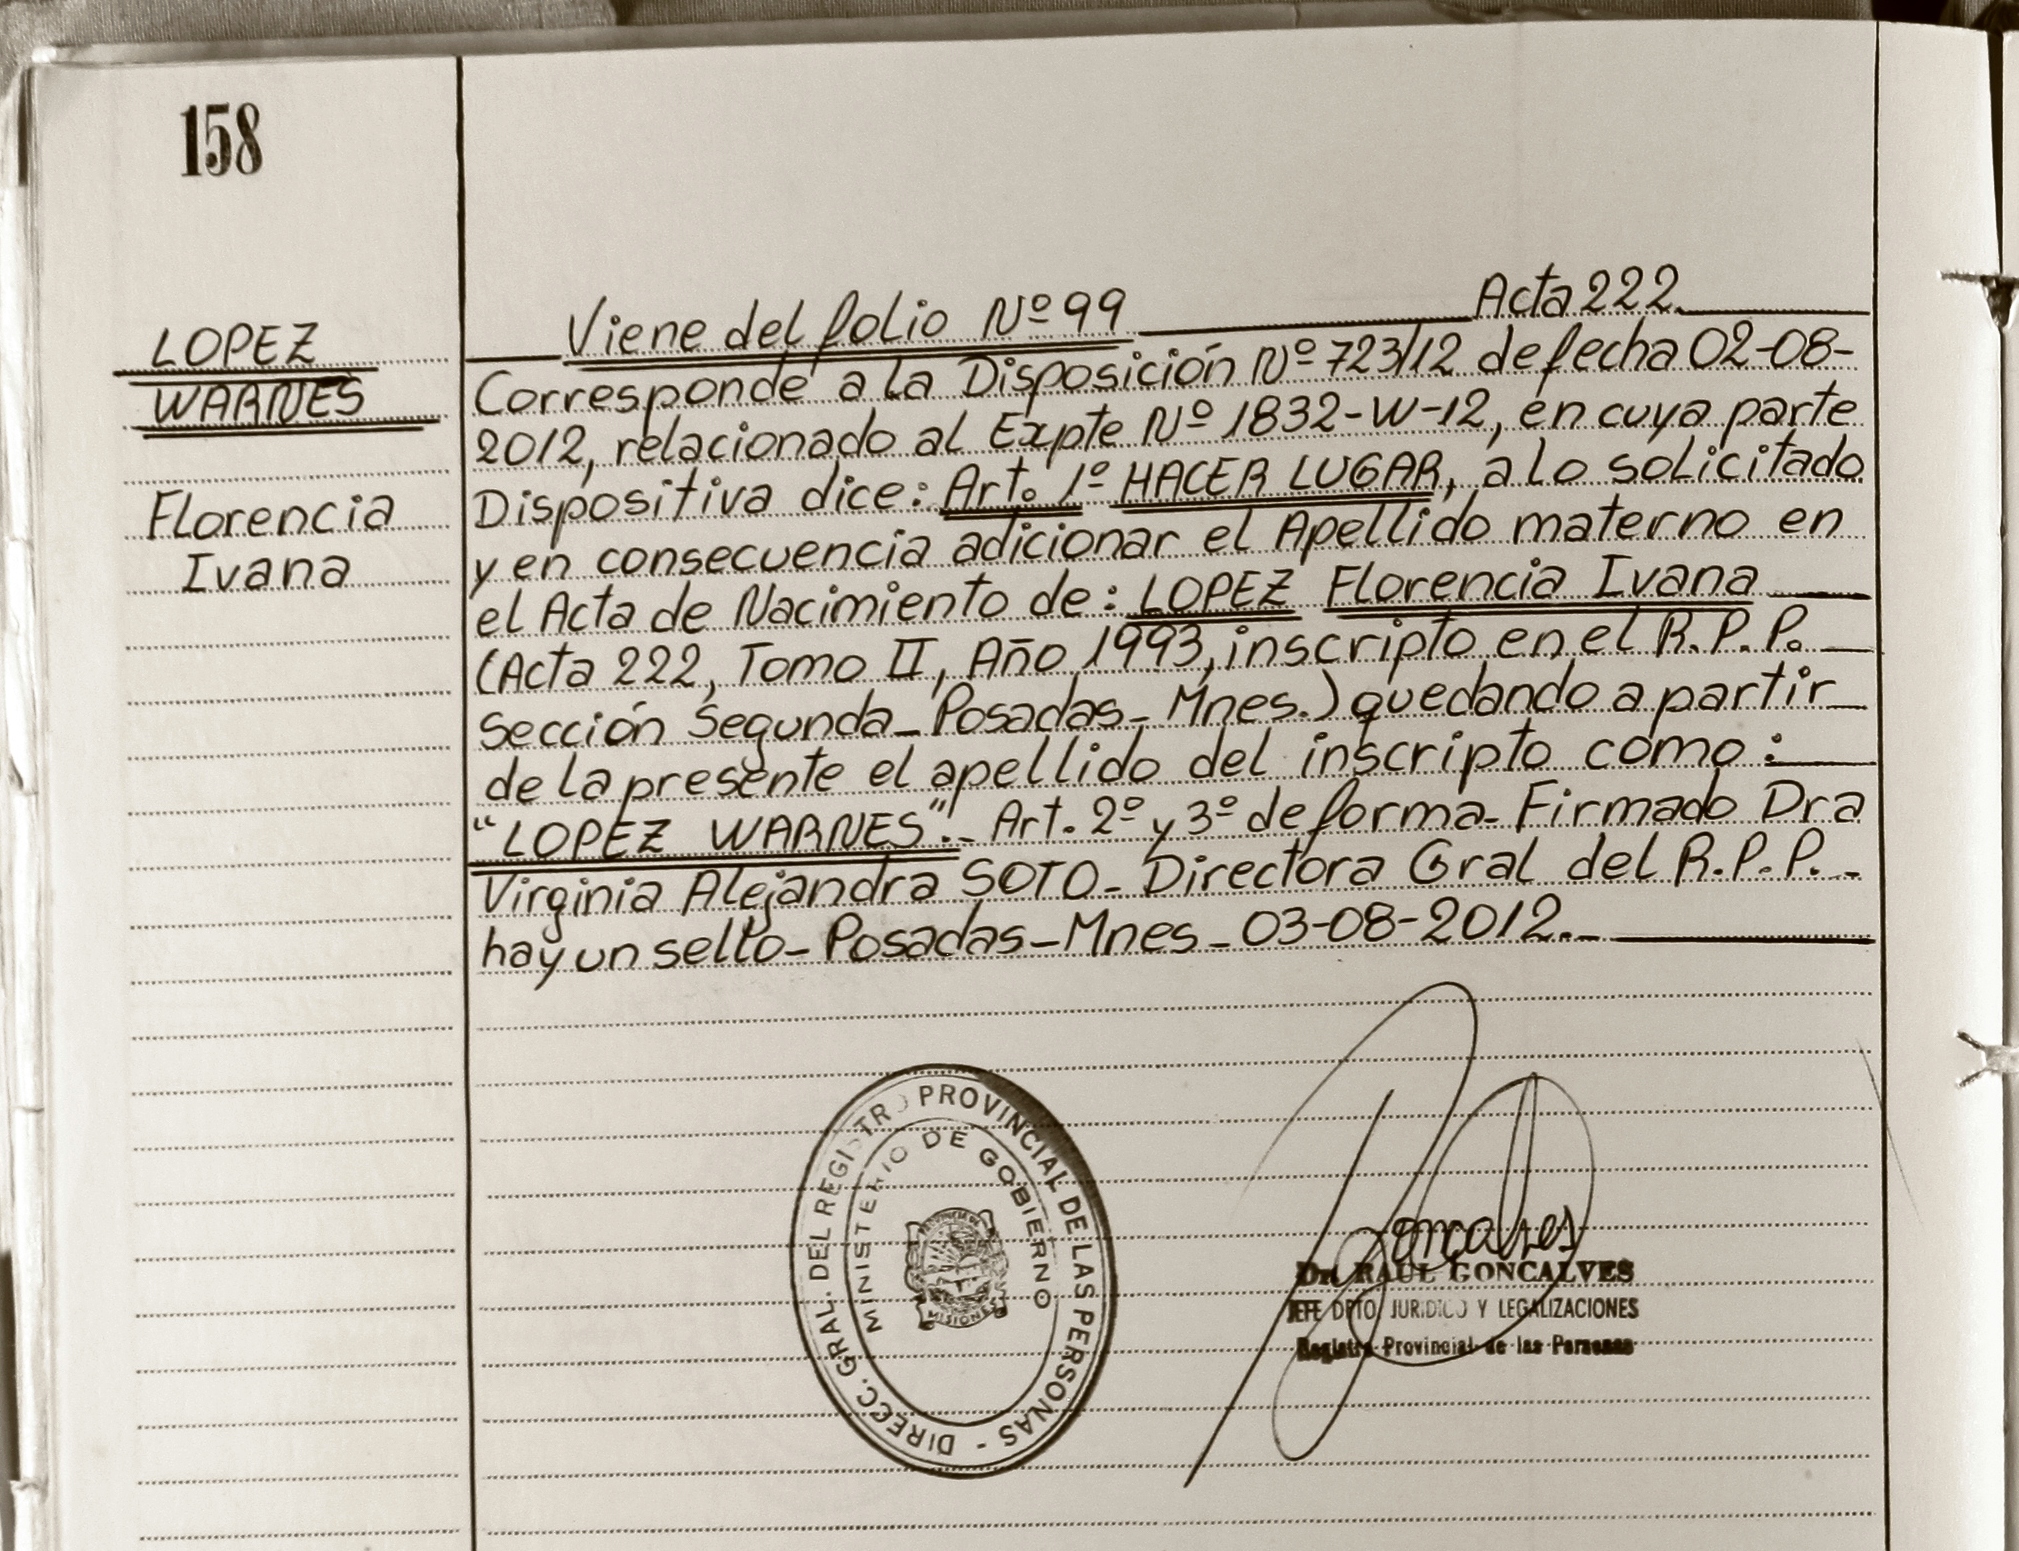 158
LOPEZ
WARNES
Florencia
Ivana
Viene del folio Nº 99 Acta 222.
Corresponde a la Disposición Nº 723/12 de fecha 02-08-
2012, relacionado al Expte Nº 1832-W-12, en cuya parte
Dispositiva dice: Art. 1º HACER LUGAR, a lo solicitado
y en consecuencia adicionar el Apellido materno en
el Acta de Nacimiento de: LOPEZ Florencia Ivana
(Acta 222, Tomo II, Año 1993, inscripto en el R.P.P.
sección Segunda - Posadas - Mnes.) quedando a partir
de la presente el apellido del inscripto como:
"LOPEZ WARNES".- Art. 2º y 3º de forma - Firmado Dra
Virginia Alejandra SOTO - Directora Gral del R.P.P. -
hay un sello - Posadas - Mnes - 03-08-2012.-
DIRECC. GRAL. DEL REGISTRO PROVINCIAL DE LAS PERSONAS -
MINISTERIO DE GOBIERNO
PROVINCIA DE
MISIONES
Goncalves
Dr. RAUL GONCALVES
JEFE DPTO. JURIDICO Y LEGALIZACIONES
Registro Provincial de las Personas